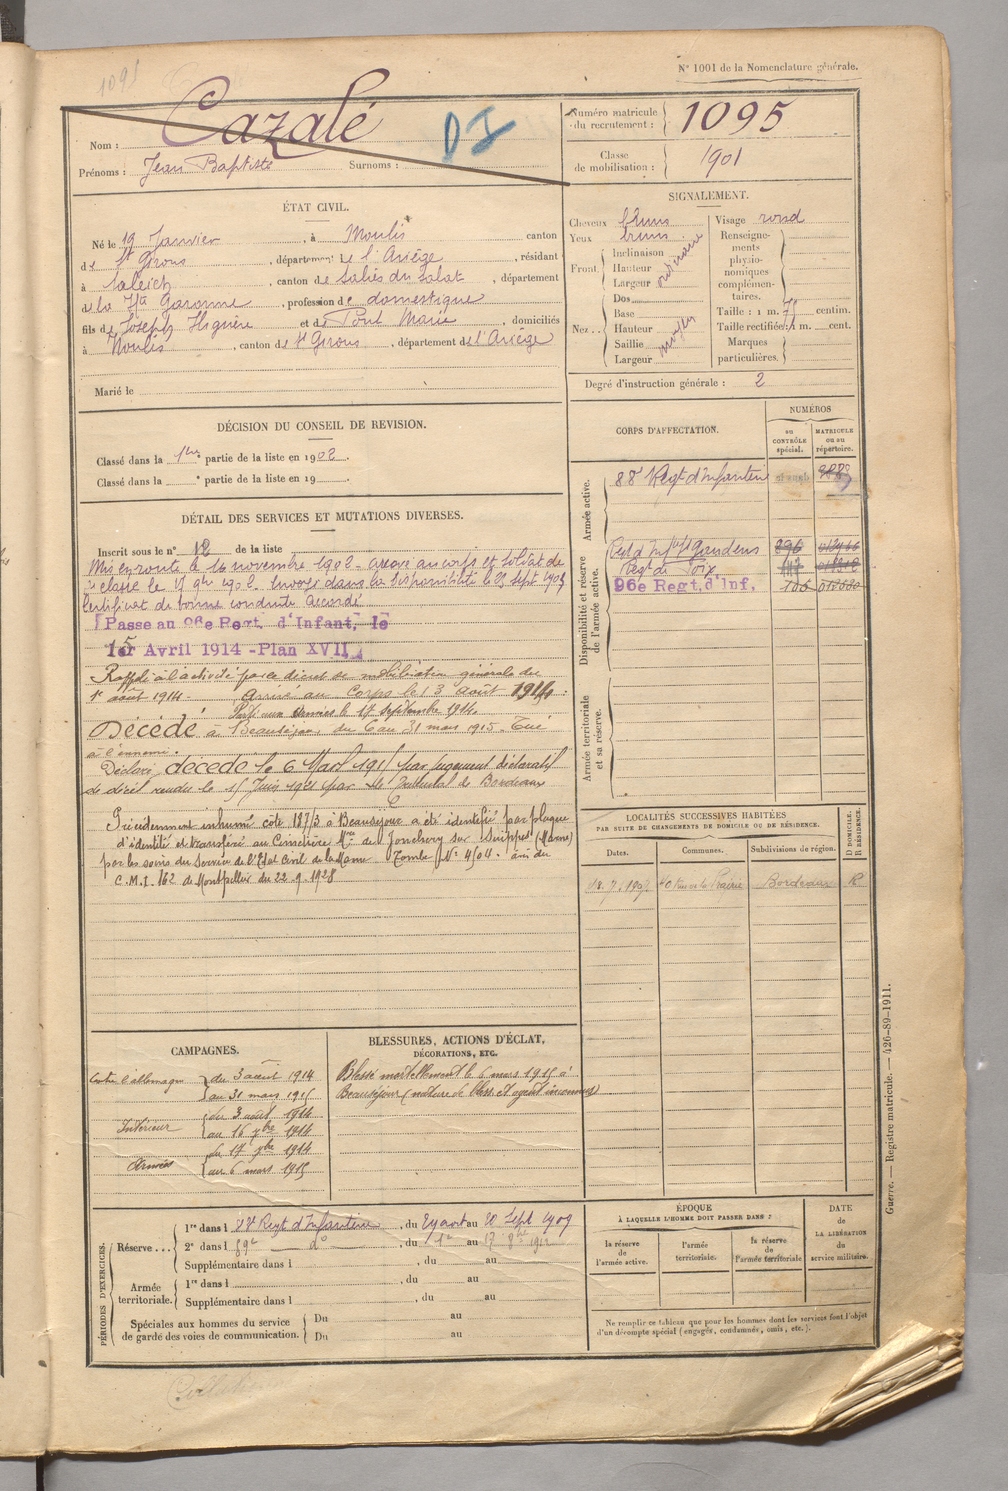 1095
N° 1001 de la Nomenclature générale.
Nom : Cazalé
DJ
Prénoms : Jean Baptiste Surnoms :
Numéro matricule du recrutement : 1095
Classe de mobilisation : 1901
ÉTAT CIVIL.
Né le 19 Janvier, à Moulis canton
de St Girons, département de l'Ariège, résidant
à Saleich, canton de Saliès du Salat, département
de la Hte Garonne, profession de domestique
fils de Joseph et de Pont Marie, domiciliés
à Moulis, canton de St Girons, département de l'Ariège
Marié le
SIGNALEMENT.
Cheveux bruns
Yeux bruns
Front. Inclinaison
Hauteur
Largeur
ordinaire
Nez... Dos
Base
Hauteur
Saillie
Largeur
moyen
Visage rond
Renseignements physionomiques complémentaires.
Taille : 1 m. centim.
Taille rectifiée : 1 m. cent.
Marques particulières.
Degré d'instruction générale : 2
DÉCISION DU CONSEIL DE REVISION.
Classé dans la 1re partie de la liste en 1902.
Classé dans la e partie de la liste en 19
DÉTAIL DES SERVICES ET MUTATIONS DIVERSES.
Inscrit sous le n° 12 de la liste
Mis en route le 14 novembre 1902. arrivé au corps et soldat de
2e classe le dit jour. Envoyé dans la disponibilité le 23 sept 1905
Certificat de bonne conduite accordé
Passe au 96e Regt. d'Infant, le
15 Avril 1914 - Plan XVII
Rappelé à l'activité par le décret de mobilisation générale du
1er août 1914. Arrivé au Corps le 13 août 1914.
Parti aux Armées le 17 septembre 1914.
Décédé à Beauséjour du 6 au 31 mars 1915. Tué
à l'ennemi.
Déclaré décédé le 6 Mars 1915 par jugement déclaratif
de décès rendu le 15 Juin 1921 par le Tribunal de Bordeaux
Précédemment inhumé côte 187/3 à Beauséjour a été identifié par plaque
d'identité et transféré au Cimetière Mre de Jonchery sur Suippes (Marne)
par les soins du Service de l'Etat Civil de la Marne Tombe N° 4504. avis du
C.M.I. 162 de Montpellier du 22.9.1928
CORPS D'AFFECTATION.
NUMÉROS
au CONTRÔLE spécial.
MATRICULE ou au répertoire.
Armée active.
88e Regt d'Infanterie
Disponibilité et réserve de l'armée active.
Regt de Foix
96e Regt. d'Inf.
Armée territoriale et sa réserve.
LOCALITÉS SUCCESSIVES HABITÉES
PAR SUITE DE CHANGEMENTS DE DOMICILE OU DE RÉSIDENCE.
Dates.
Communes.
Subdivisions de région.
D DOMICILE. R RÉSIDENCE.
40 Rue de la Prairie Bordeaux R
CAMPAGNES.
Contre l'allemagne du 3 août 1914
au 31 mars 1915
Intérieur du 3 août 1914
au 16 7bre 1914
Armées du 17 7bre 1914
au 6 mars 1915
BLESSURES, ACTIONS D'ÉCLAT,
DÉCORATIONS, ETC.
Blessé mortellement le 6 mars 1915 à
Beauséjour (nature de bless. et agent inconnus)
PÉRIODES D'EXERCICES.
Réserve... 1re dans l 88e Regt d'Infanterie, du 29 aout au 20 Sept 1909
2e dans l 59e do, du 1er au 17 8bre 1912
Supplémentaire dans l , du au
Armée territoriale. 1re dans l , du au
Supplémentaire dans l , du au
Spéciales aux hommes du service de garde des voies de communication. Du au
Du au
ÉPOQUE
À LAQUELLE L'HOMME DOIT PASSER DANS :
la réserve de l'armée active.
l'armée territoriale.
la réserve de l'armée territoriale
DATE de LA LIBÉRATION du service militaire.
Ne remplir ce tableau que pour les hommes dont les services font l'objet
d'un décompte spécial (engagés, condamnés, omis, etc.).
Guerre. — Registre matricule. — 426-89-1911.